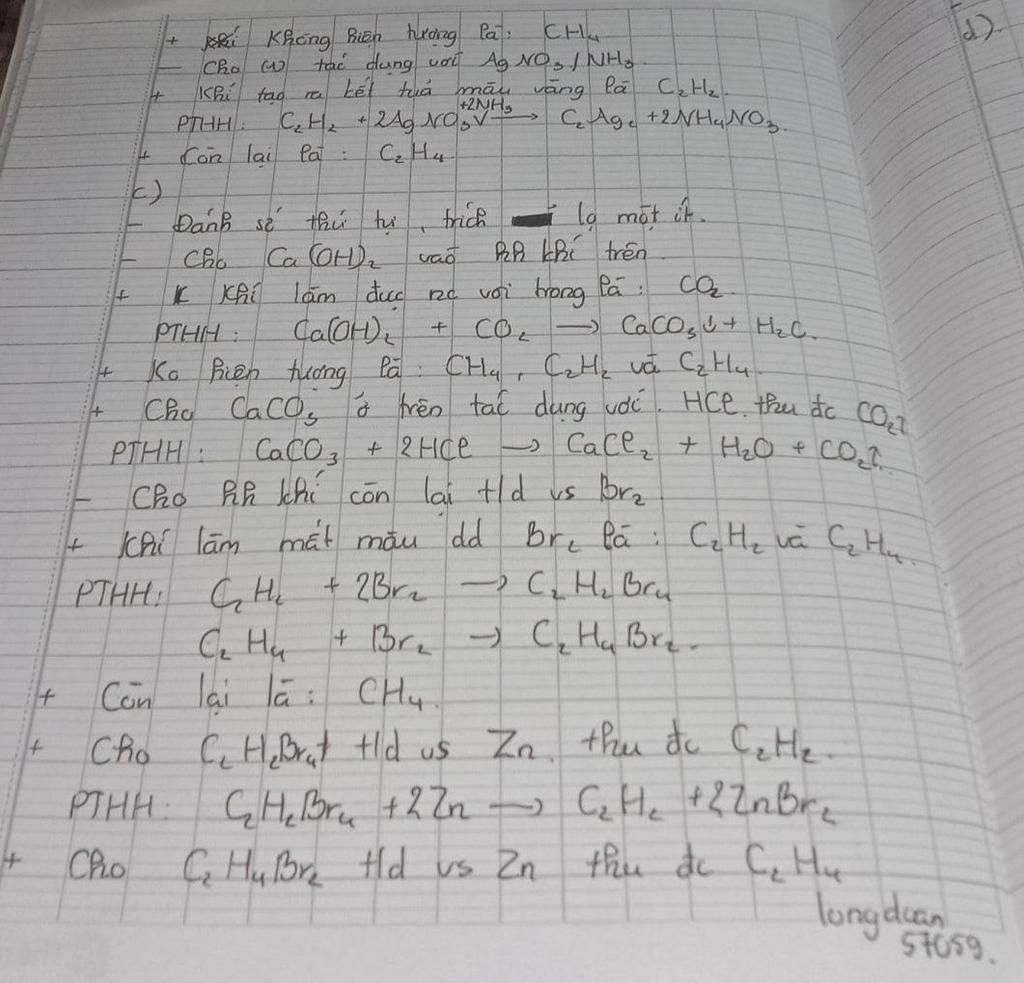 + Khí không hiện tượng là: CH₄
- Cho (1) tác dụng với AgNO₃/NH₃
+ Khí tạo ra kết tủa màu vàng là C₂H₂.
PTHH: C₂H₂ + 2AgNO₃ +2NH₃ → C₂Ag₂ + 2NH₄NO₃.
+ Còn lại là: C₂H₄
c)
- Đánh số thứ tự, trích lọ một ít.
- Cho Ca(OH)₂ vào hh khí trên
+ K khí làm đục nc vôi trong là: CO₂.
PTHH: Ca(OH)₂ + CO₂ → CaCO₃↓ + H₂O.
+ Ko hiện tượng là: CH₄, C₂H₂ và C₂H₄.
+ Cho CaCO₃ ở trên tác dụng với. HCl thu đc CO₂↑
PTHH: CaCO₃ + 2HCl → CaCl₂ + H₂O + CO₂↑.
- Cho hh khí còn lại t/d vs Br₂
+ Khí làm mất màu dd Br₂ là: C₂H₂ và C₂H₄.
PTHH: C₂H₂ + 2Br₂ → C₂H₂Br₄
C₂H₄ + Br₂ → C₂H₄Br₂.
+ Còn lại là: CH₄.
+ Cho C₂H₂Br₄ t/d vs Zn. thu đc C₂H₂.
PTHH: C₂H₂Br₄ + 2Zn → C₂H₂ + 2ZnBr₂
+ Cho C₂H₄Br₂ t/d vs Zn thu đc C₂H₄
longdoan
57059.
d)